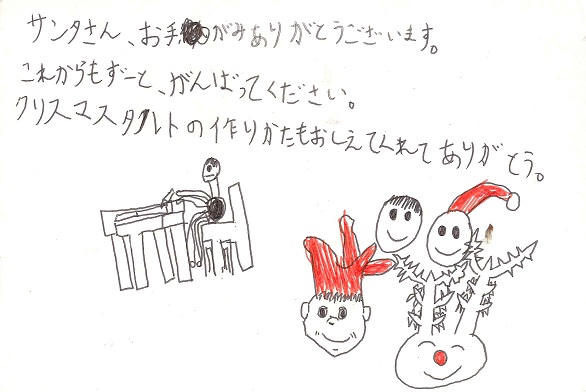 サンタさん、お手がみありがとうございます。
これからもずーと、がんばってください。
クリスマスタルトの作りかたもおしえてくれてありがとう。